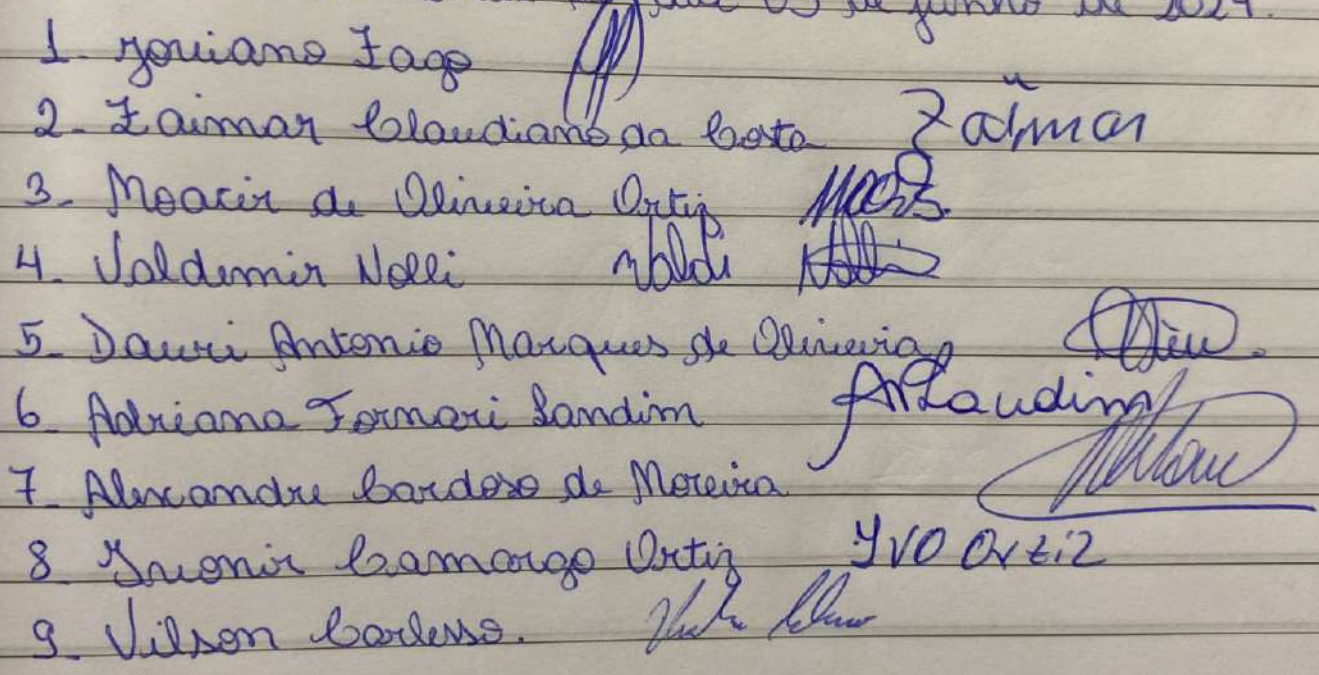 de 03 de junho de 2024.
1- Joviano Zago
2- Zaimar Claudiano da Costa Zaimar
3- Moacir de Oliveira Ortiz
4- Valdemir Nolli Valdi Nolli
5- Dauri Antonio Marques de Oliveira
6- Adriana Fornari Landim
7- Alexandre Cardoso de Moreira
8 Ivonir Camargo Ortiz YVO Ortiz
9- Vilson Carlesso.